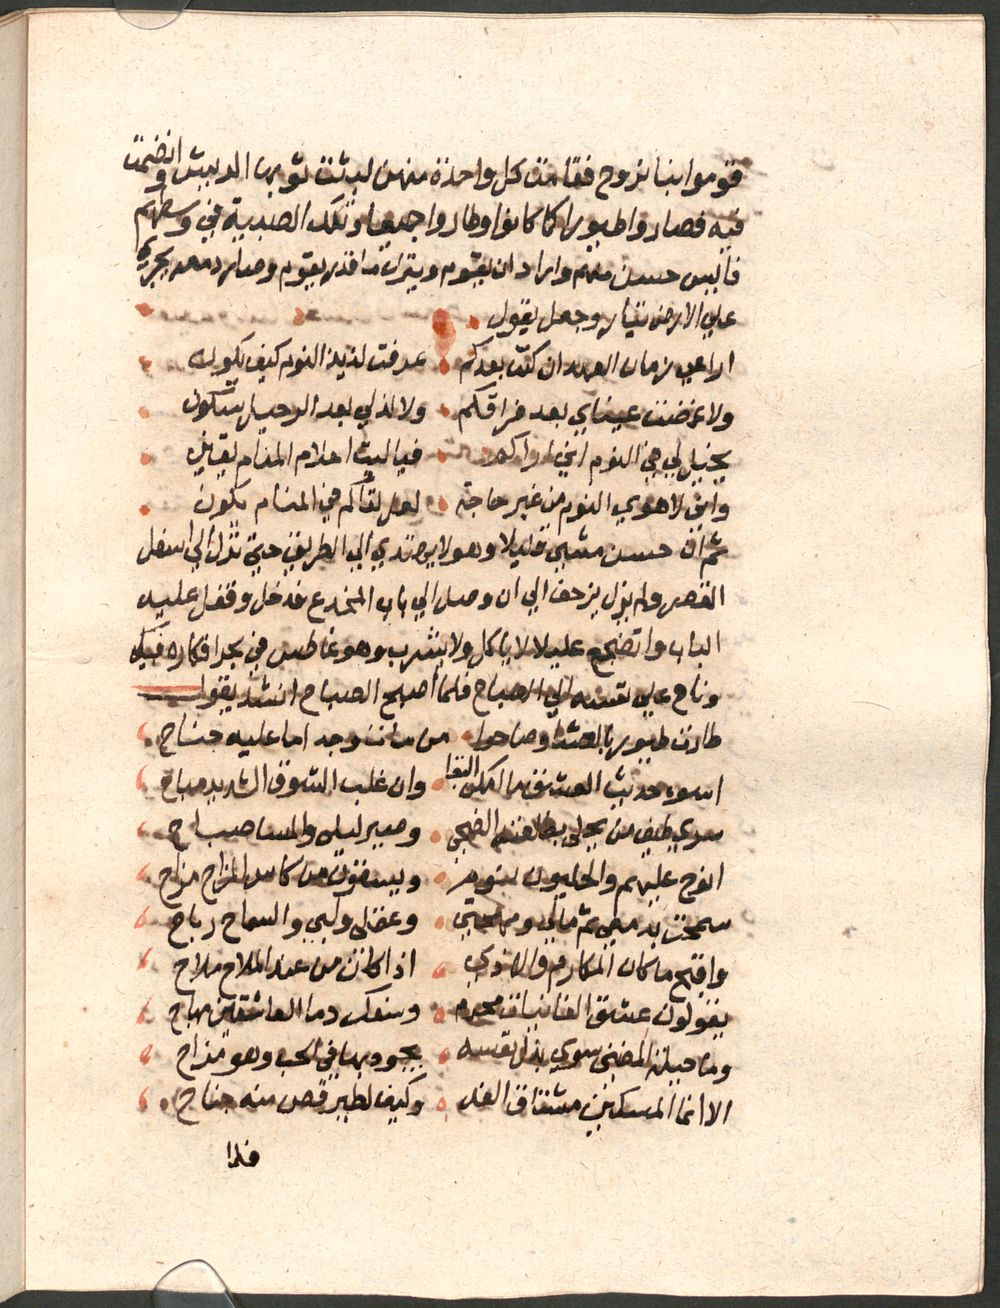 قوموا بنا نروح فقامت كل واحدة منهن لبست ثوبها الريش وانضمت
فيه فصاروا طيورا كما كانوا وطاروا جميعا وتلك الصبية في وسطهم
فأيس حسن منهم واراد ان يقوم وينزل ما قدر يقوم وصار دمعه يجري
علي الارض تيار وجعل يقول
اراعي زمان العهد ان كنت بعدكم عرفت لذيذ النوم كيف يكون
ولا غمضت عيناي بعد فراقكم ولا لذ لي بعد الرحيل سكون
يخيل لي في النوم اني اراكم فيا ليت احلام المنام يقين
واني لاهوي النوم من غير حاجة لعل لقاكم في المنام يكون
ثم ان حسن مشي قليلا وهو لا يهتدي الي الطريق حتي نزل الي اسفل
القصر ولم يزل يزحف الي ان وصل الي باب المخدع فدخل وقفل عليه
الباب واتضجع عليلا لا ياكل ولا يشرب وهو غاطس في بحر افكاره فبكي
وناح علي نفسه الي الصباح فلما أصبح الصباح انشد يقول
طارت طيور بالعشا وصاحوا من مات وجدا ما عليه جناح
اسر حديث العشق ما امكن البقا وان غلب الشوق الشديد مباح
سري طيف من يحلى بطلعته الضحي وصير ليلي والمسا صباح
انوح عليهم والخليون نوم ويسقون من كاس المزاح مزاح
سمحت بدمعي ثم مالي ومهجتي وعقلي ولبي والسماح رباح
واقبح ما كان المكاره والاذي اذا كان من عند الملاح ملاح
يقولون عشق الغانيات محرم وسفك دما العاشقين مباح
وما حيلة المضني سوي بذل نفسه يجود بها في الحب وهو مزاح
الا انما المسكين مشتاق الف وكيف لطير قص منه جناح
فلما